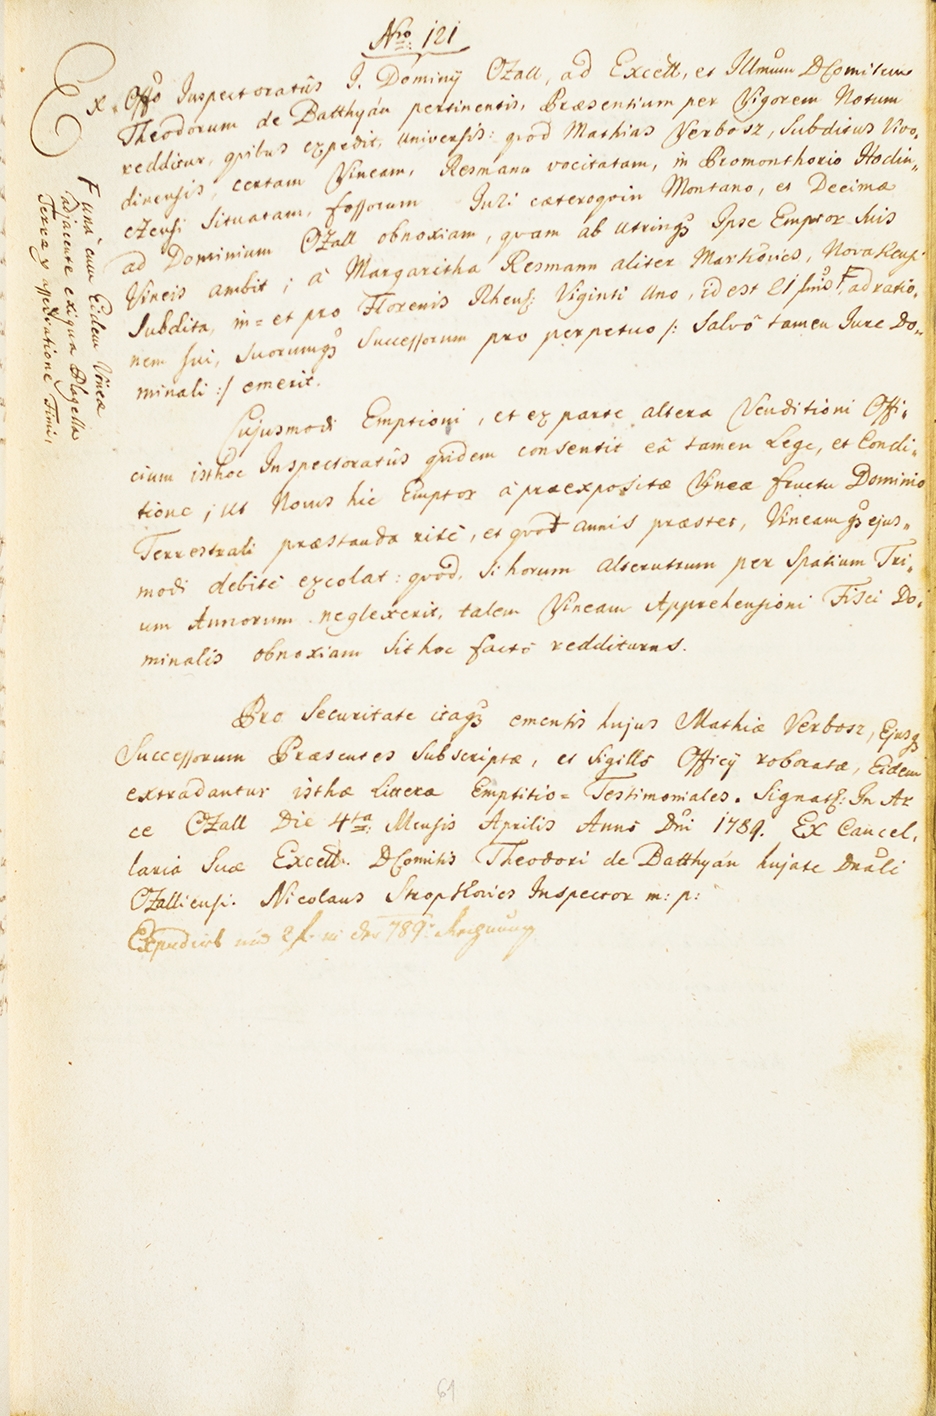 Nro 121
Ex Offo Inspectoratûs I. Dominÿ OZall, ad Excell, et Illmum DComitem
Theodorum de Batthyán pertinentis, Præsentium per Vigorem Notum
redditur, quibus expedit, universis: quòd Mathias Verbosz, Subditus Vivo„
dinensis certam Vineam, Resmann vocitatam, in Promonthorio Hodin„
czensi situatam, fossorum Juri cæteroquin Montano, et Decimæ
ad Dominium OZall obnoxiam, quam ab utrinqȝ Ipse Emptor suis
Vineis ambit; à Margaritha Resmann aliter Markovics, Novakensi
Subdita, in= et pro Florenis Rhens: Viginti Uno, id est 21 fnis F, ad ratio„
nem sui, Suorumqȝ Successorum pro perpetuo /: Salvô tamen Jure Do„
minali :/ emerit.
F unà cum Eidem Vineæ
adjacente exigua Plagella
Terræ, asservatione Fimi,
Cujusmodi Emptioni, et ex parte altera Venditioni Offi„
cium isthoc Inspectoratûs quidem consentit eâ tamen Lege, et Condi„
tione; ut Novus hic Emptor à præexpositæ Vineæ fructu Dominio
Terrestrali præstanda ritè, et quot annis præstet, Vineamqȝ ejus„
modi debitè excolat: quòd, si horum alterutrum per Spatium Tri„
um Annorum neglexerit, talem Vineam Apprehensioni Fisci Do„
minalis obnoxiam sit hoc factô redditurus.
Pro Securitate itaqȝ ementis hujus Mathiæ Verbosz, Ejusqȝ
Successorum Præsentes Subscriptæ, et Sigillô Officÿ roboratæ, Eidem
extradantur isthæ Litteræ Emptitio= Testimoniales. Signat: In Ar
ce OZall Die 4ta Mensis Aprilis Anno Dni 1789. Ex Cancel„
laria Suæ Excell. DComitis Theodori de Batthyán hujate Dnali
OZalliensi. Nicolaus Inspector m: p:
2 f. 789 Rechnung
64